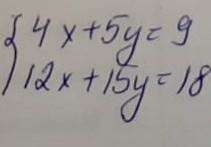 4x+5y=9
12x+15y=18